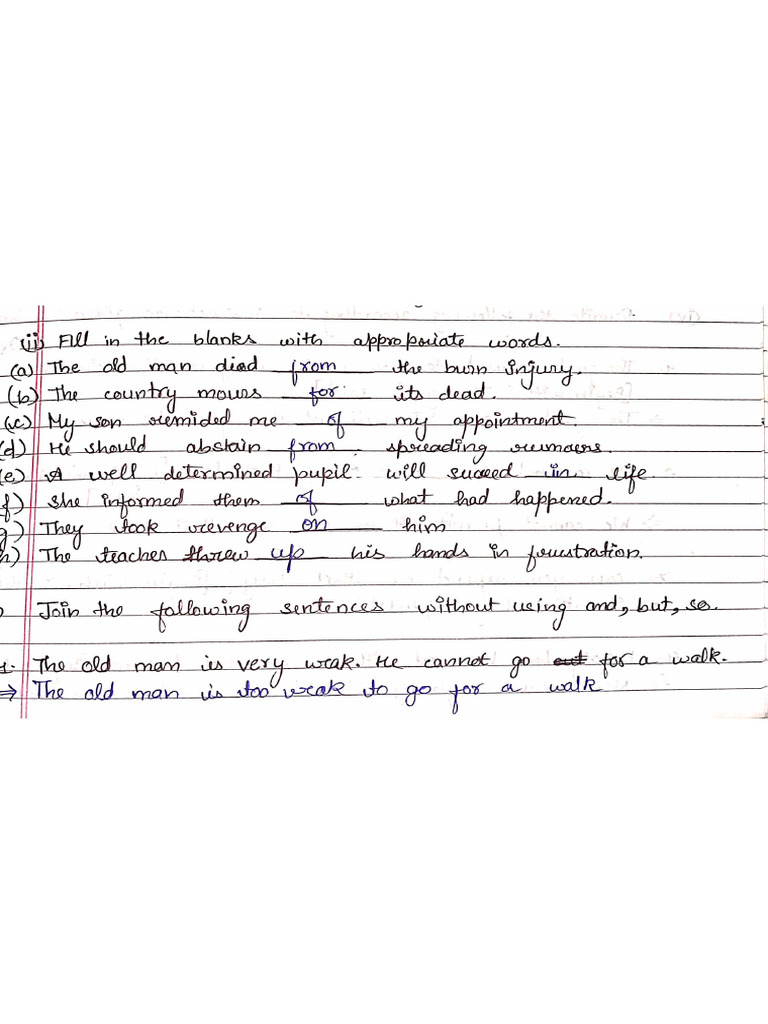 (ii) Fill in the blanks with appropriate words.
(a) The old man died from the burn injury.
(b) The country mours for its dead.
(c) My son remided me of my appointment.
(d) He should abstain from spreading rumours.
(e) A well determined pupil will succeed in life
f) She informed them of what had happened.
g) They took revenge on him
h) The teacher threw up his hands in frustration.
Join the following sentences without using and, but, so.
1. The old man is very weak. He cannot go out for a walk.
⇒ The old man is too weak to go for a walk